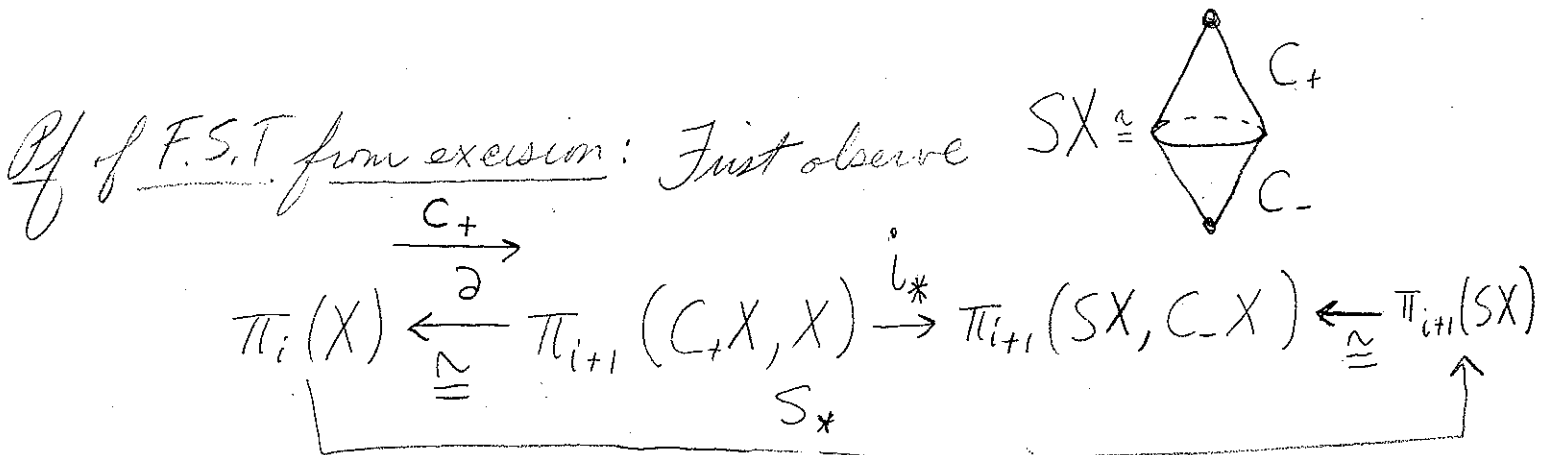 Pf of F.S.T from excision: First observe SX ≅
C₊
C₋
C₊
∂ i_*
π_i(X) ←≅ π_{i+1}(C₊X, X) → π_{i+1}(SX, C₋X) ←≅ π_{i+1}(SX)
S_*